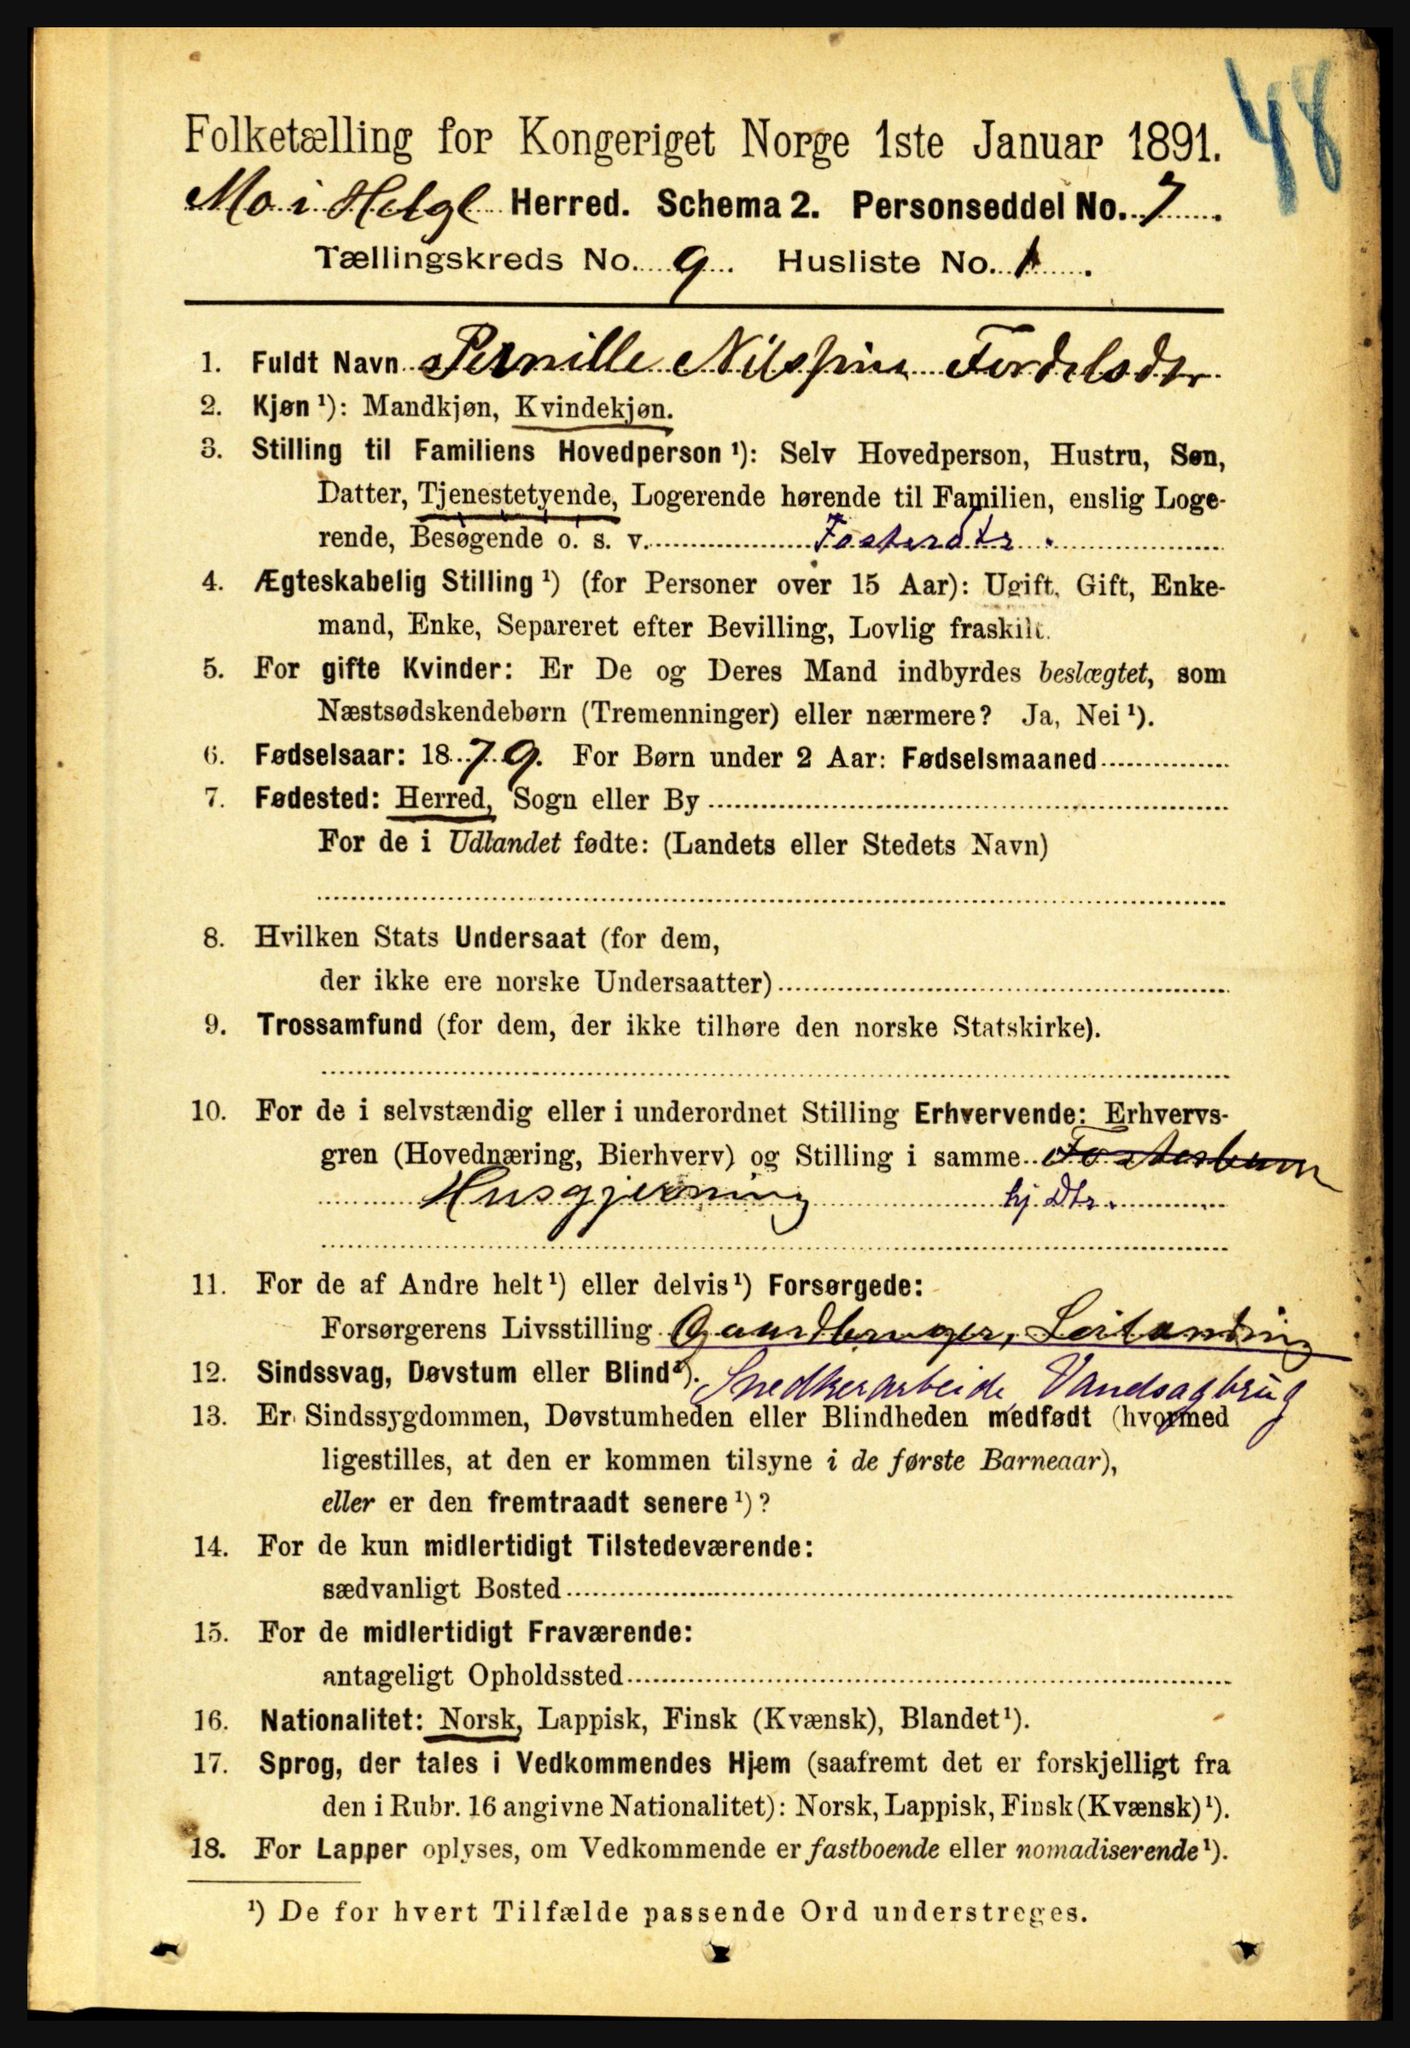 48
Folketælling for Kongeriget Norge 1ste Januar 1891.
Mo i Helgl Herred. Schema 2. Personseddel No. 7.
Tællingskreds No. 9. Husliste No. 1.
1. Fuldt Navn Pernille Nilsine Fordelsdtr
2. Kjøn ¹): Mandkjøn, Kvindekjøn.
3. Stilling til Familiens Hovedperson ¹): Selv Hovedperson, Hustru, Søn,
Datter, Tjenestetyende, Logerende hørende til Familien, enslig Loge-
rende, Besøgende o. s. v. Fosterdtr.
4. Ægteskabelig Stilling ¹) (for Personer over 15 Aar): Ugift, Gift, Enke-
mand, Enke, Separeret efter Bevilling, Lovlig fraskilt.
5. For gifte Kvinder: Er De og Deres Mand indbyrdes beslægtet, som
Næstsødskendebørn (Tremenninger) eller nærmere? Ja, Nei ¹).
6. Fødselsaar: 1879. For Børn under 2 Aar: Fødselsmaaned
7. Fødested: Herred, Sogn eller By
For de i Udlandet fødte: (Landets eller Stedets Navn)
8. Hvilken Stats Undersaat (for dem,
der ikke ere norske Undersaatter)
9. Trossamfund (for dem, der ikke tilhøre den norske Statskirke).
10. For de i selvstændig eller i underordnet Stilling Erhvervende: Erhvervs-
gren (Hovednæring, Bierhverv) og Stilling i samme Fosterbarn
Husgjerning hj. Dtr.
11. For de af Andre helt ¹) eller delvis ¹) Forsørgede:
Forsørgerens Livsstilling Gaardbruger,
12. Sindssvag, Døvstum eller Blind ¹). Snedkerarbeide Vandsagbrug
13. Er Sindssygdommen, Døvstumheden eller Blindheden medfødt (hvormed
ligestilles, at den er kommen tilsyne i de første Barneaar),
eller er den fremtraadt senere ¹)?
14. For de kun midlertidigt Tilstedeværende:
sædvanligt Bosted
15. For de midlertidigt Fraværende:
antageligt Opholdssted
16. Nationalitet: Norsk, Lappisk, Finsk (Kvænsk), Blandet ¹).
17. Sprog, der tales i Vedkommendes Hjem (saafremt det er forskjelligt fra
den i Rubr. 16 angivne Nationalitet): Norsk, Lappisk, Finsk (Kvænsk) ¹).
18. For Lapper oplyses, om Vedkommende er fastboende eller nomadiserende ¹).
¹) De for hvert Tilfælde passende Ord understreges.